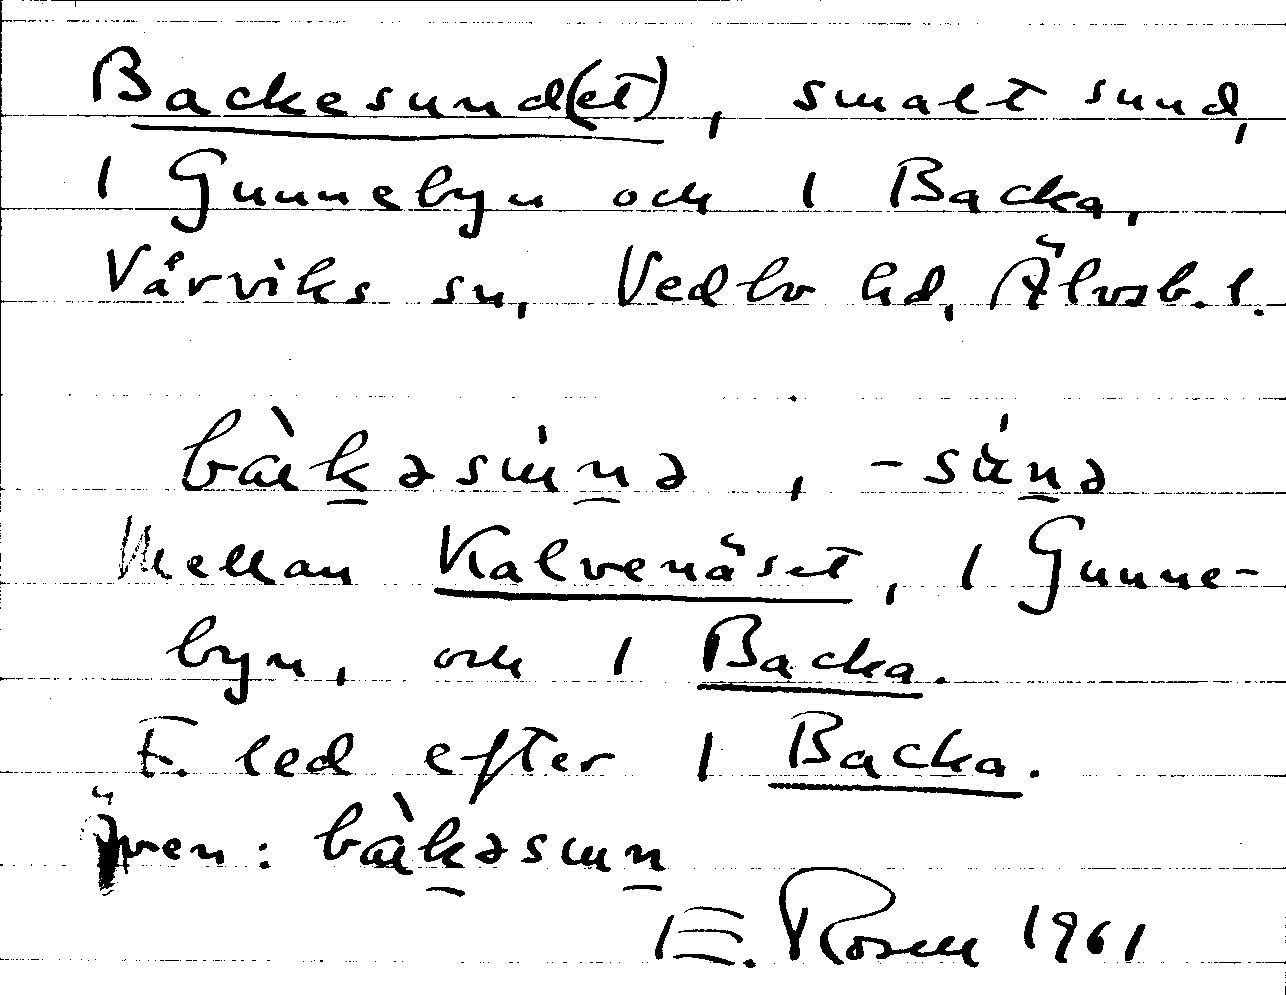 Backesund(et), smalt sund,
1 Gunnebyn och 1 Backa,
Vårviks sn, Vedbo hd, Älvsb. l.
bàk̠əsɯ́n̠ə, -sɯ́n̠ə
Mellan Kalvenäset, 1 Gunne-
byn, och 1 Backa.
F. led efter 1 Backa.
Även: bàk̠əsɯn̠
E. Rosell 1961